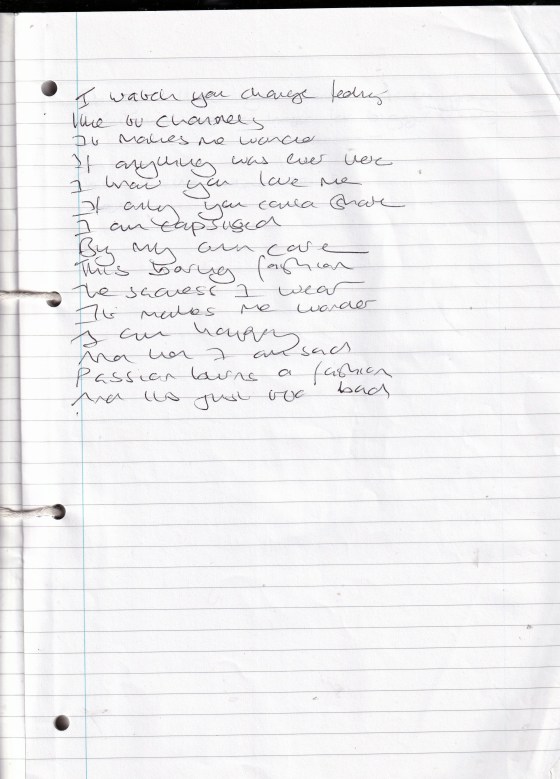 I watch you change feelings
like tv channels
It makes me wonder
If anything was ever here
I know you love me
If only you could share
I am capsused
By my own care
This boring fashion
The sadness I wear
It makes me wonder
I am happy
And then I am sad
Passion burns a fashion
And it's just too bad